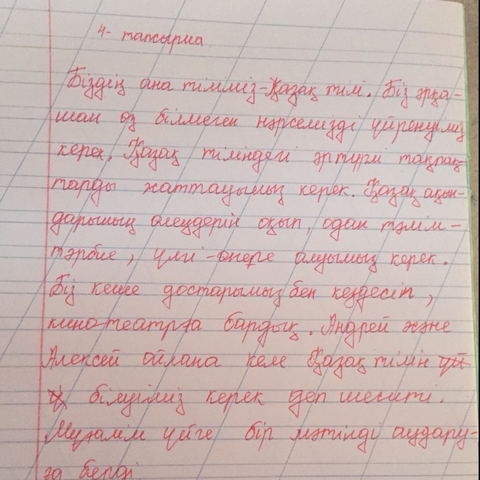 4- тапсырма
Біздің ана тіліміз-Қазақ тілі. Біз әрқа-
шан өз білмеген нәрсемізді үйренуіміз
керек. Қазақ тіліндегі әртүрлі тақпақ-
тарды жаттауымыз керек. Қазақ ақын-
дарының өлеңдерін оқып, одан тәлім-
тәрбие, үлгі-өнеге алуымыз керек.
Біз кеше достарымыз бен кездесіп,
кинотеатрға бардық. Андрей және
Алексей ойлана келе Қазақ тілін
білуіміз керек деп шешті.
Мұғалім үйге бір мәтінді аудару-
ға берді